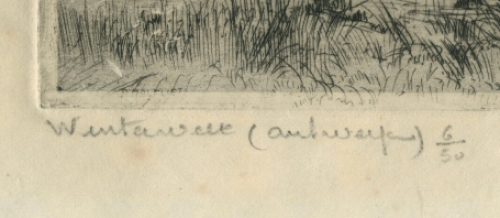 Winterwelt (Antwerpen) 6/50